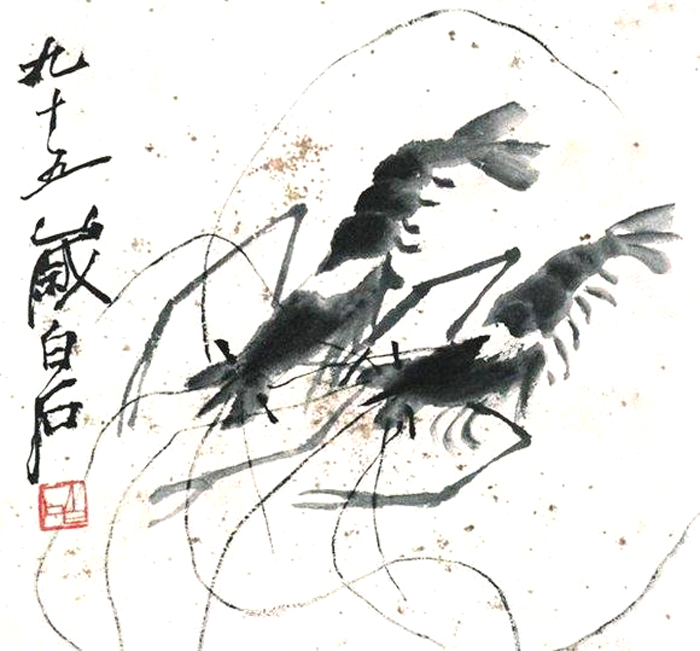 九十五歲白石